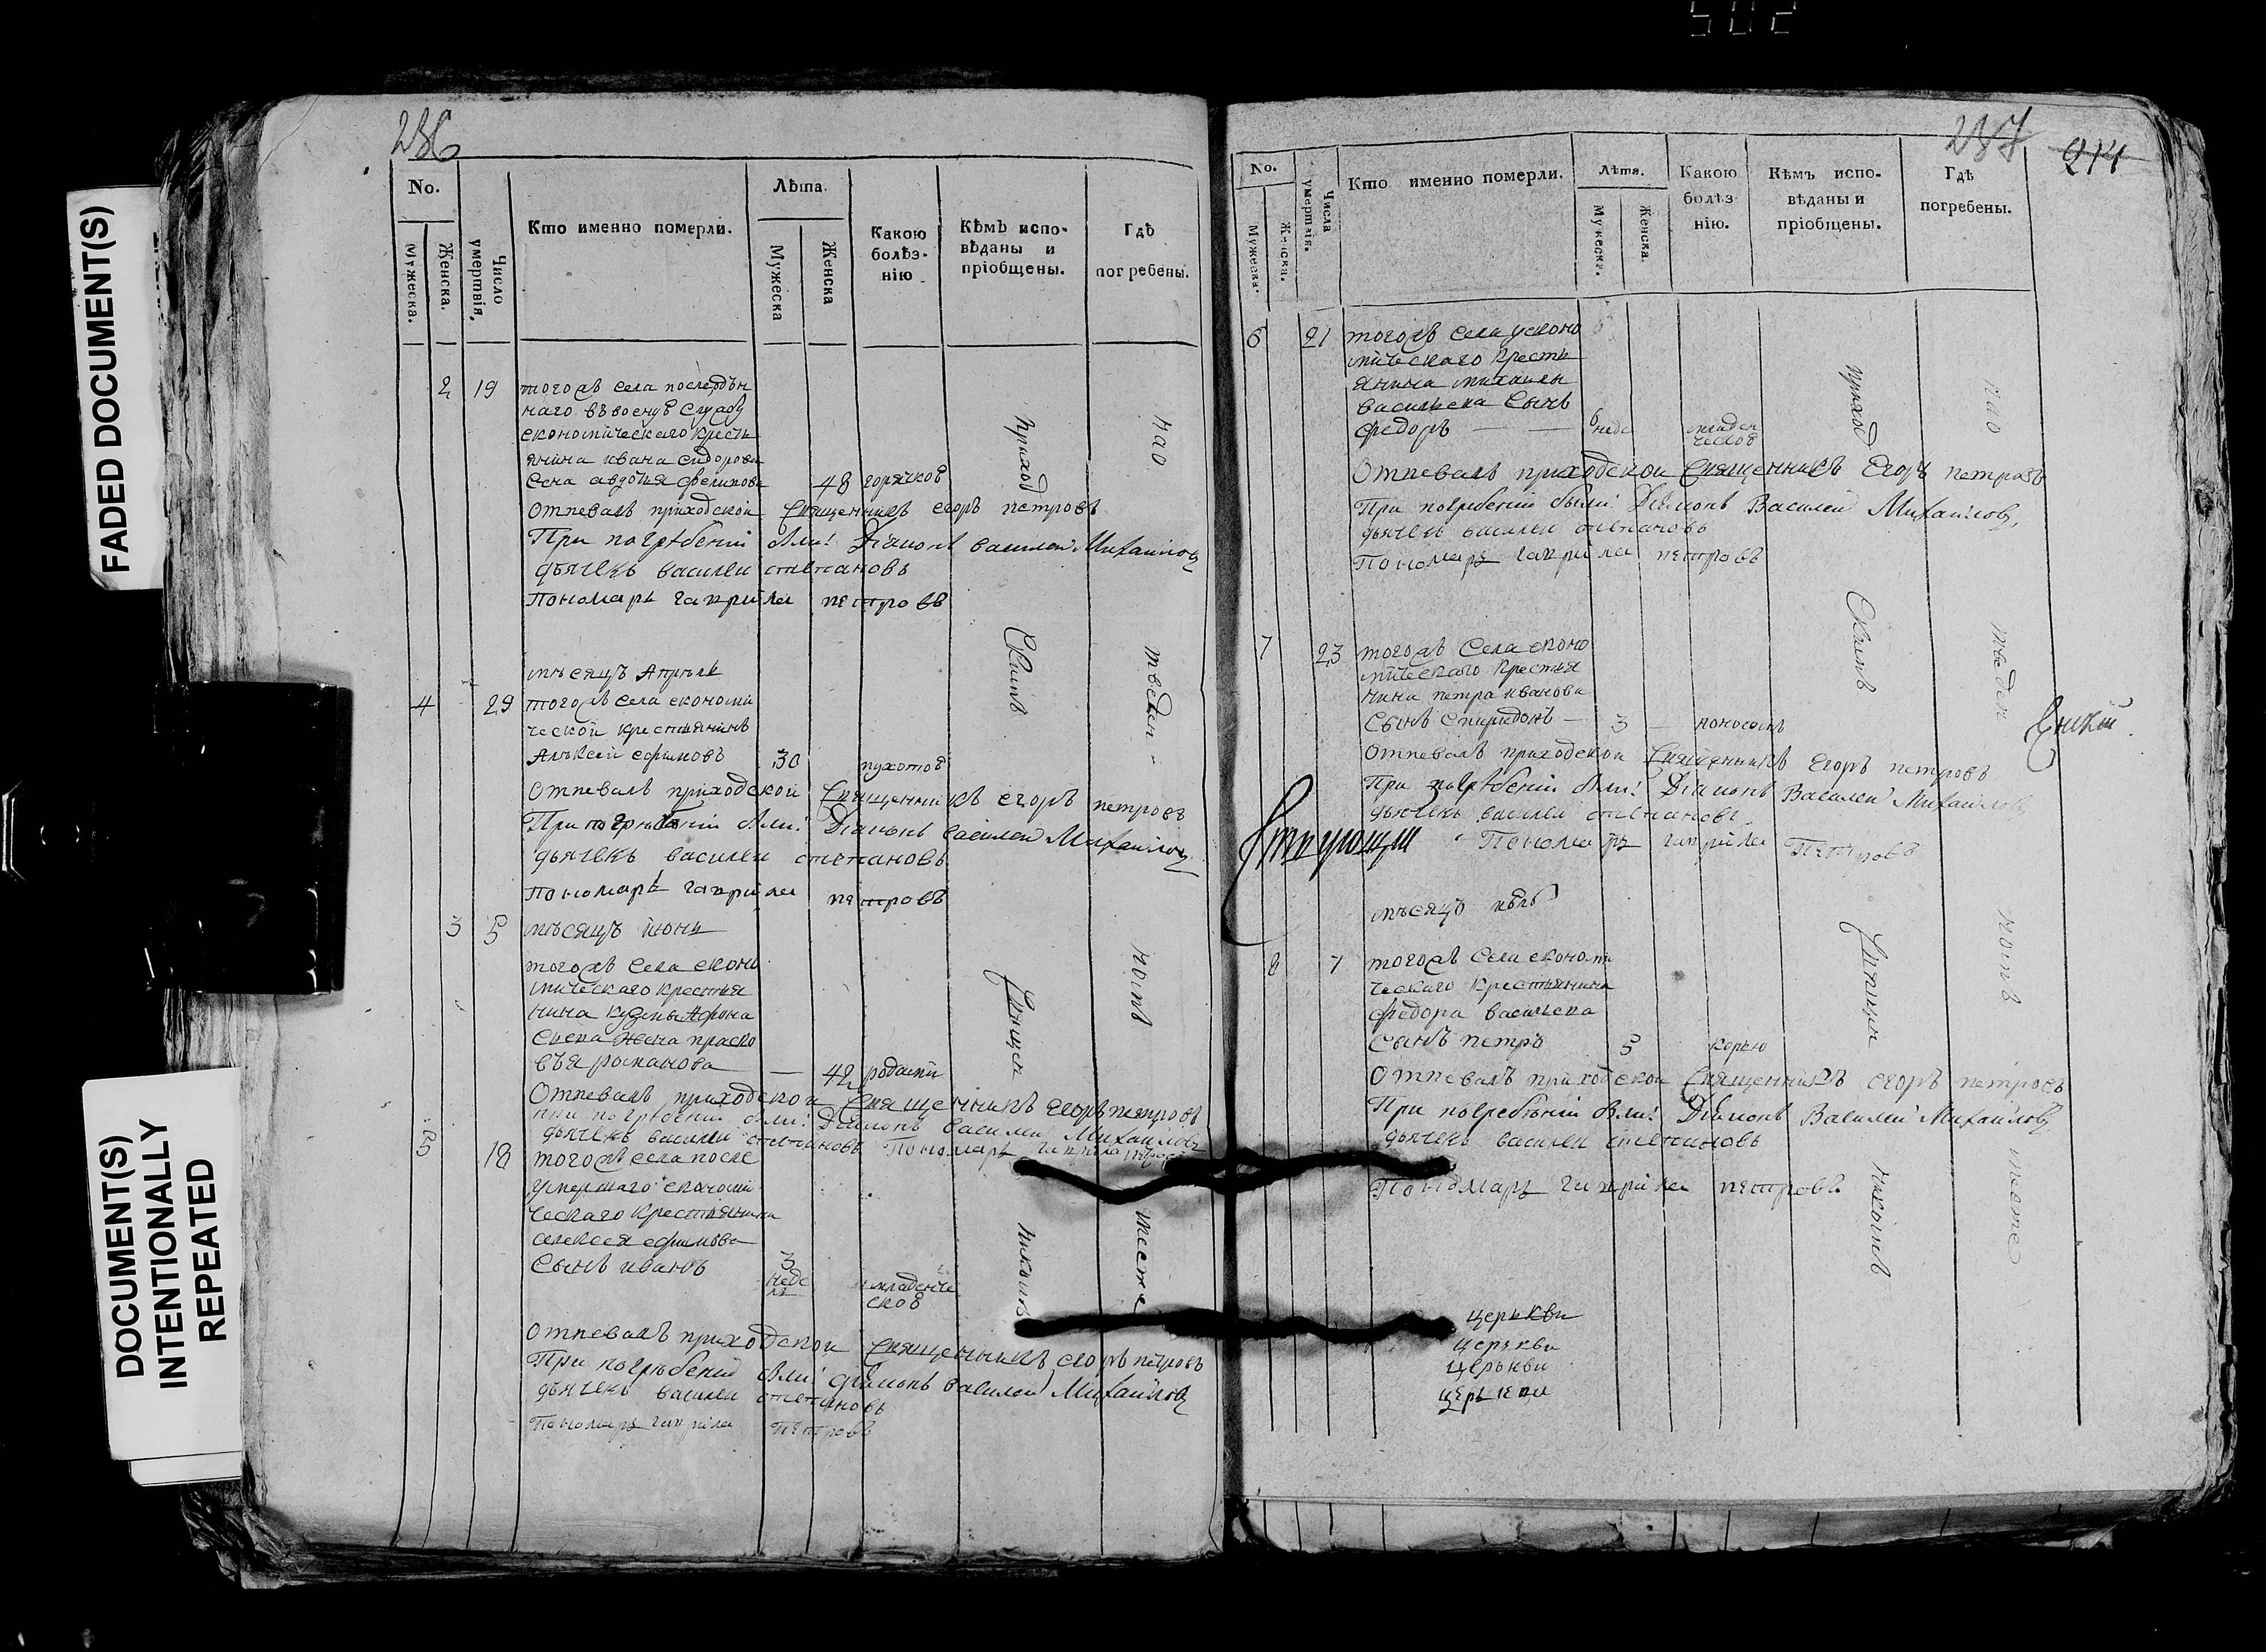 502
FADED DOCUMENT(S)
DOCUMENT(S)
INTENTIONALLY
REPEATED
236
No.
Мужеска.
Женска.
Число умертвія.
Кто именно померли.
Лѣта.
Мужеска
Женска
Какою
болѣз-
нію
Кѣмъ испо-
вѣданы и
пріобщены.
Гдѣ
погребены.
2 19 тогожъ села
наго въ военую службу
економическаго кресть
янина ивана сидорова
48 горячкой
отпевалъ приходской Священникъ егоръ петровъ
При погрѣбеніи были: Діаконъ василей Михаиловъ
дьячекъ василеи степановъ
Пономарь гаврила петровъ
мѣсяцъ Апрель
4 29 тогожъ села економи
ческой крестьянинъ
Алѣксей ефимовъ 30 чухотой
Отпевалъ приходской Священникъ егоръ петровъ
При погрѣбеніи были: Діаконъ василей Михаиловъ
дьячекъ василеи степановъ
Пономарь гаврила петровъ
3 5 мѣсяцъ июнь
тогожъ села еконо
мическаго крестья
нина кузмы Афона
сьева жена праско
вья романова — 42 родами
Отпевалъ приходской Священникъ егоръ петровъ
при погребении были: Діаконъ василеи Михаиловъ
дьячекъ василеи степановъ Пономарь гаврила петровъ
5 18 тогожъ села после
умершаго економи
ческаго крестьянина
алексея ефимова
Сынъ иванъ 3
неде
ли младенче
ской
отпевалъ приходской Священникъ егоръ петровъ
При погрѣбеніи были: діаконъ василей Михаиловъ
дьячекъ василеи степановъ
Пономарь гаврила петровъ
приход
Скимъ
Священ
никомъ
на о
тведен
номъ
месте
237 214
No.
Мужеска.
Женска.
Числа умертвія.
Кто именно померли.
Лѣта.
Мужеска.
Женска.
Какою
болѣз
нію.
Кѣмъ испо-
вѣданы и
пріобщены.
Гдѣ
погребены.
6 21 тогожъ села еконо
мическаго кресть
янина михаилы
васильева сынъ
федоръ — — 6 неде младен
ческой
Отпевалъ приходской Священникъ Егоръ петровъ
При погребеніи были: Діаконъ Василей Михаиловъ,
дьячекъ василеи степановъ
Пономарь гаврила петровъ
7 23 тогожъ Села еконо
мическаго крестья
нина петра иванова
Сынъ спиридонъ — 3 — поносомъ
Отпевалъ приходской Священникъ Егоръ петровъ
При погрѣбеніи были: Діаконъ Василей Михаиловъ
дьячекъ василеи степановъ
Пономарь гаврила Петровъ
мѣсяцъ июль
8 7 тогожъ села економи
ческаго крестьянина
федора васильева
Сынъ петръ 5 корью
Отпевалъ приходской Священникъ егоръ петровъ
При погребѣніи были: Діаконъ Василей Михаиловъ
дьячекъ василеи степановъ
Пономарь гаврила петровъ
приход
Скимъ
Священ
никомъ
на о
тведен
номъ
месте
церькви
церькви
церькви
церькви